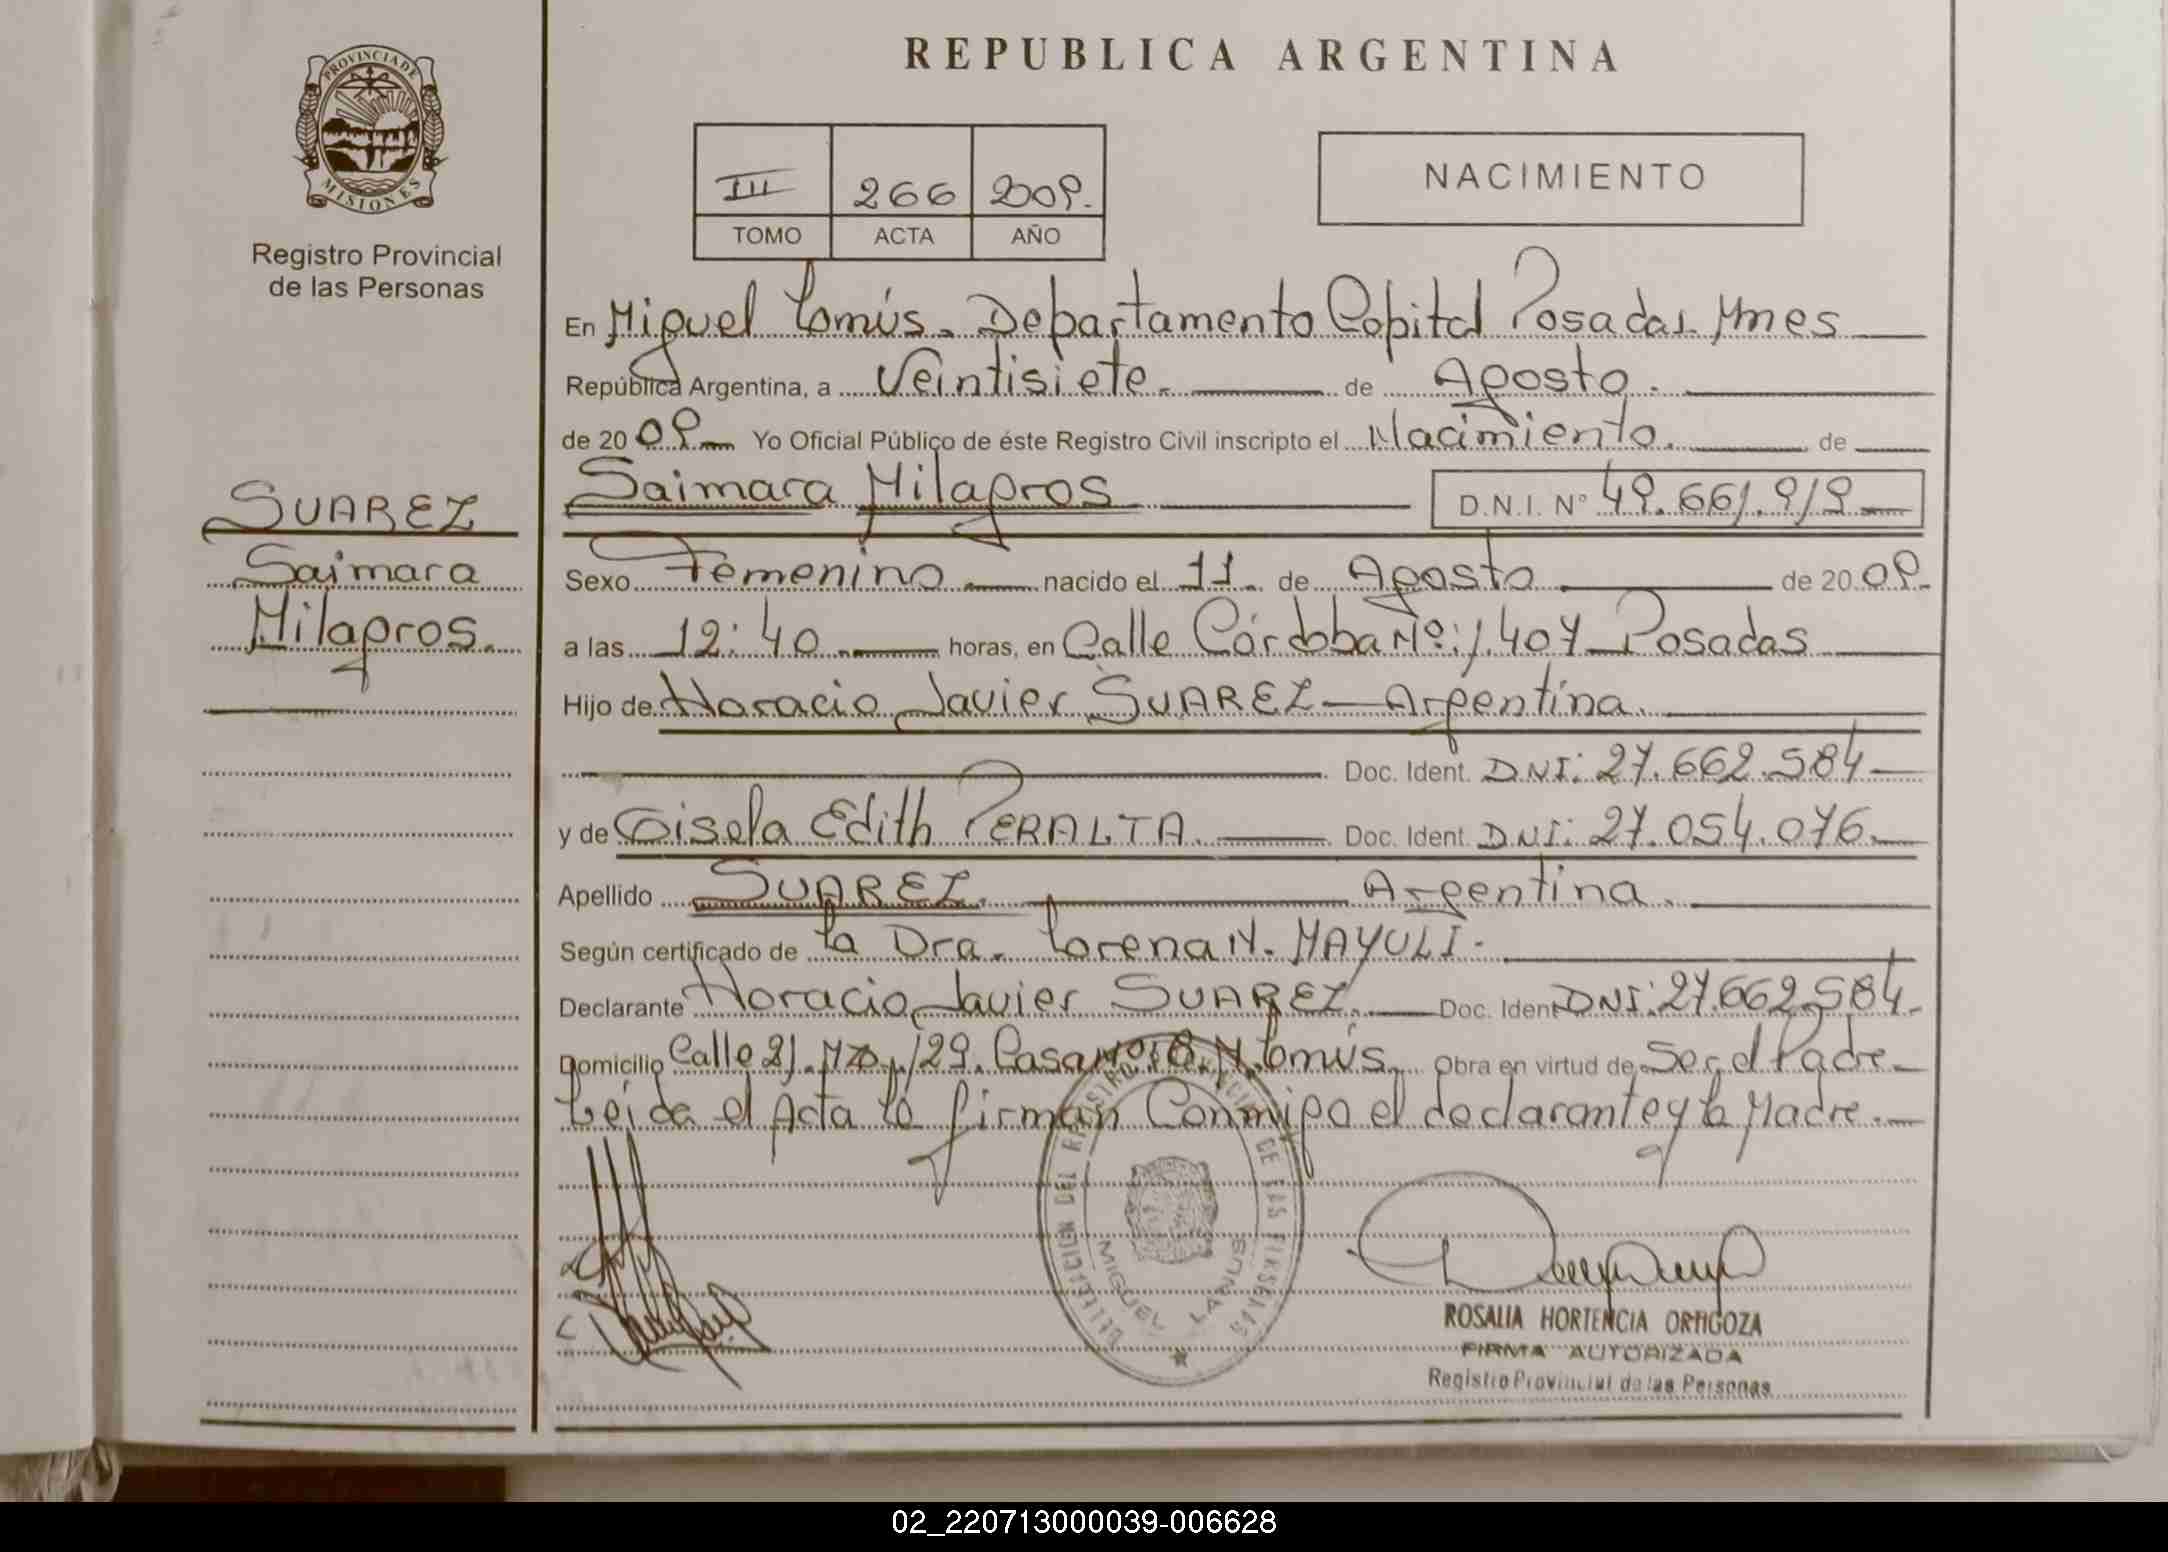 PROVINCIA DE
MISIONES
Registro Provincial
de las Personas
SUAREZ
Saimara
Milagros.
REPUBLICA ARGENTINA
III 266 2009.
TOMO ACTA AÑO
NACIMIENTO
En Miguel Lanús. Departamento Capital Posadas Mnes
República Argentina, a Veintisiete. de Agosto.
de 20 09 Yo Oficial Público de éste Registro Civil inscripto el Nacimiento. de
Saimara Milagros D.N.I. N° 49.661.919
Sexo Femenino nacido el 11. de Agosto de 20 09.
a las 12:40 horas, en Calle Córdoba Nº: 1.407 Posadas
Hijo de Horacio Javier SUAREZ — Argentina.
Doc. Ident. DNI: 27.662.584
y de Gisela Edith PERALTA. Doc. Ident. DNI: 27.054.076.
Apellido SUAREZ. Argentina.
Según certificado de la Dra. Lorena N. MAYULI.
Declarante Horacio Javier SUAREZ Doc. Ident DNI: 27.662.584.
Domicilio Calle 21. Mz. 129. Casa Nº: M. Lanús. Obra en virtud de Ser el Padre
Leida el Acta la firman Conmigo el declarante y la Madre.
DELEGACION DEL REGISTRO PROVINCIAL DE LAS PERSONAS
MIGUEL LANUS
ROSALIA HORTENCIA ORTIGOZA
FIRMA AUTORIZADA
Registro Provincial de las Personas
02_220713000039-006628